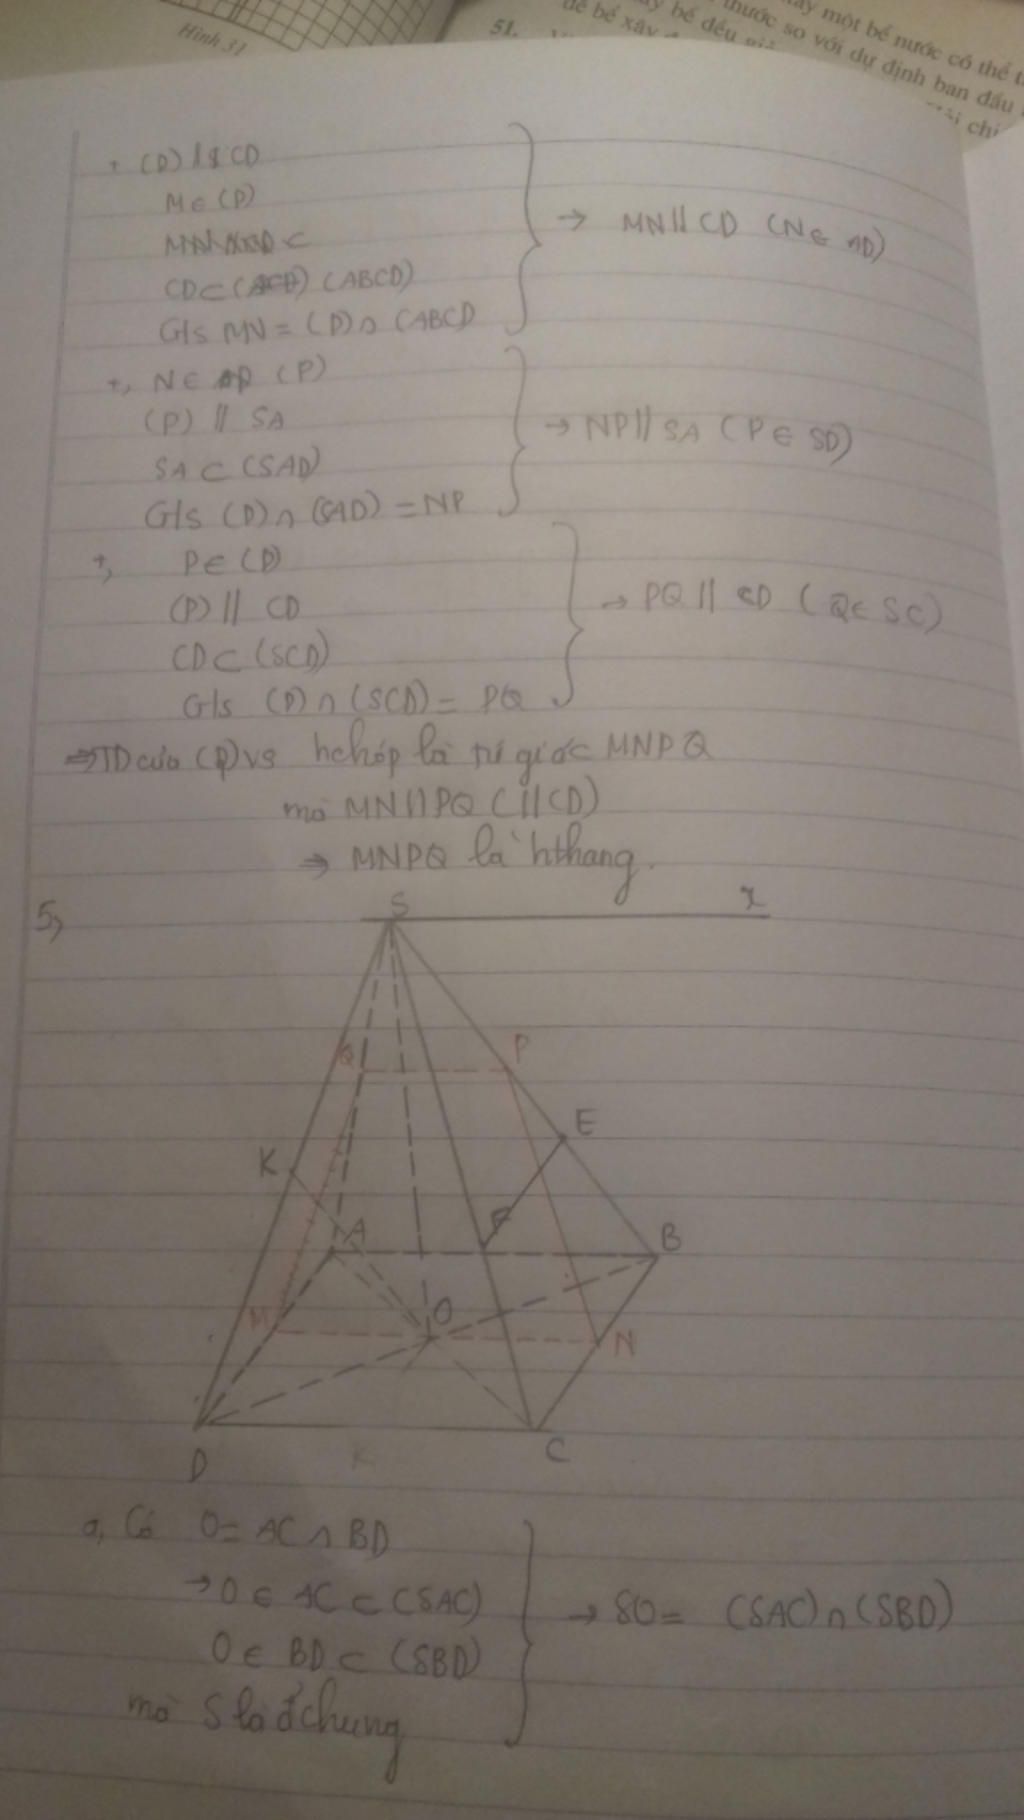 Hình 31
51.
mấy một bể nước có thể t
thước so với dự định ban đầu
bể đều
để bể xây
chi
+ (P) // CD
M ∈ (P)
CD ⊂ (ABCD)
G/s MN = (P) ∩ (ABCD
→ MN // CD (N ∈ AD)
+, N ∈ (P)
(P) // SA
SA ⊂ (SAD)
G/s (P) ∩ (SAD) = NP
→ NP // SA (P ∈ SD)
+, P ∈ (P)
(P) // CD
CD ⊂ (SCD)
G/s (P) ∩ (SCD) = PQ
→ PQ // CD (Q ∈ SC)
⇒ TD của (P) vs hchóp là tứ giác MNPQ
mà MN // PQ (// CD)
⇒ MNPQ là hthang.
5,
S x
Q P
K E
A F B
M O N
D K C
a, Có O = AC ∩ BD
→ O ∈ AC ⊂ (SAC)
O ∈ BD ⊂ (SBD)
mà S là đ' chung
→ SO = (SAC) ∩ (SBD)